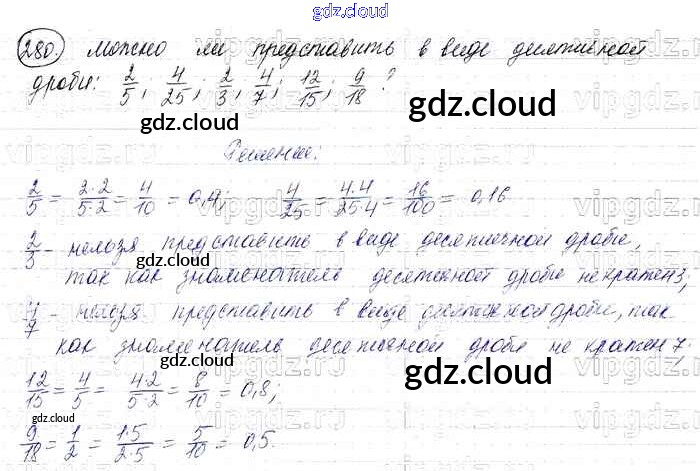 gdz.cloud
280. Можно ли представить в виде десятичной
дроби: 2/5; 4/25; 2/3; 4/7; 12/15; 9/18?
gdz.cloud
gdz.cloud
Решение:
2/5 = 2·2/5·2 = 4/10 = 0,4; 4/25 = 4·4/25·4 = 16/100 = 0,16
2/3 - нельзя представить в виде десятичной дроби,
так как знаменатель десятичной дроби не кратен 3;
gdz.cloud
4/7 - нельзя представить в виде десятичной дроби, так
как знаменатель десятичной дроби не кратен 7;
12/15 = 4/5 = 4·2/5·2 = 8/10 = 0,8;
gdz.cloud
gdz.cloud
9/18 = 1/2 = 1·5/2·5 = 5/10 = 0,5.
gdz.cloud